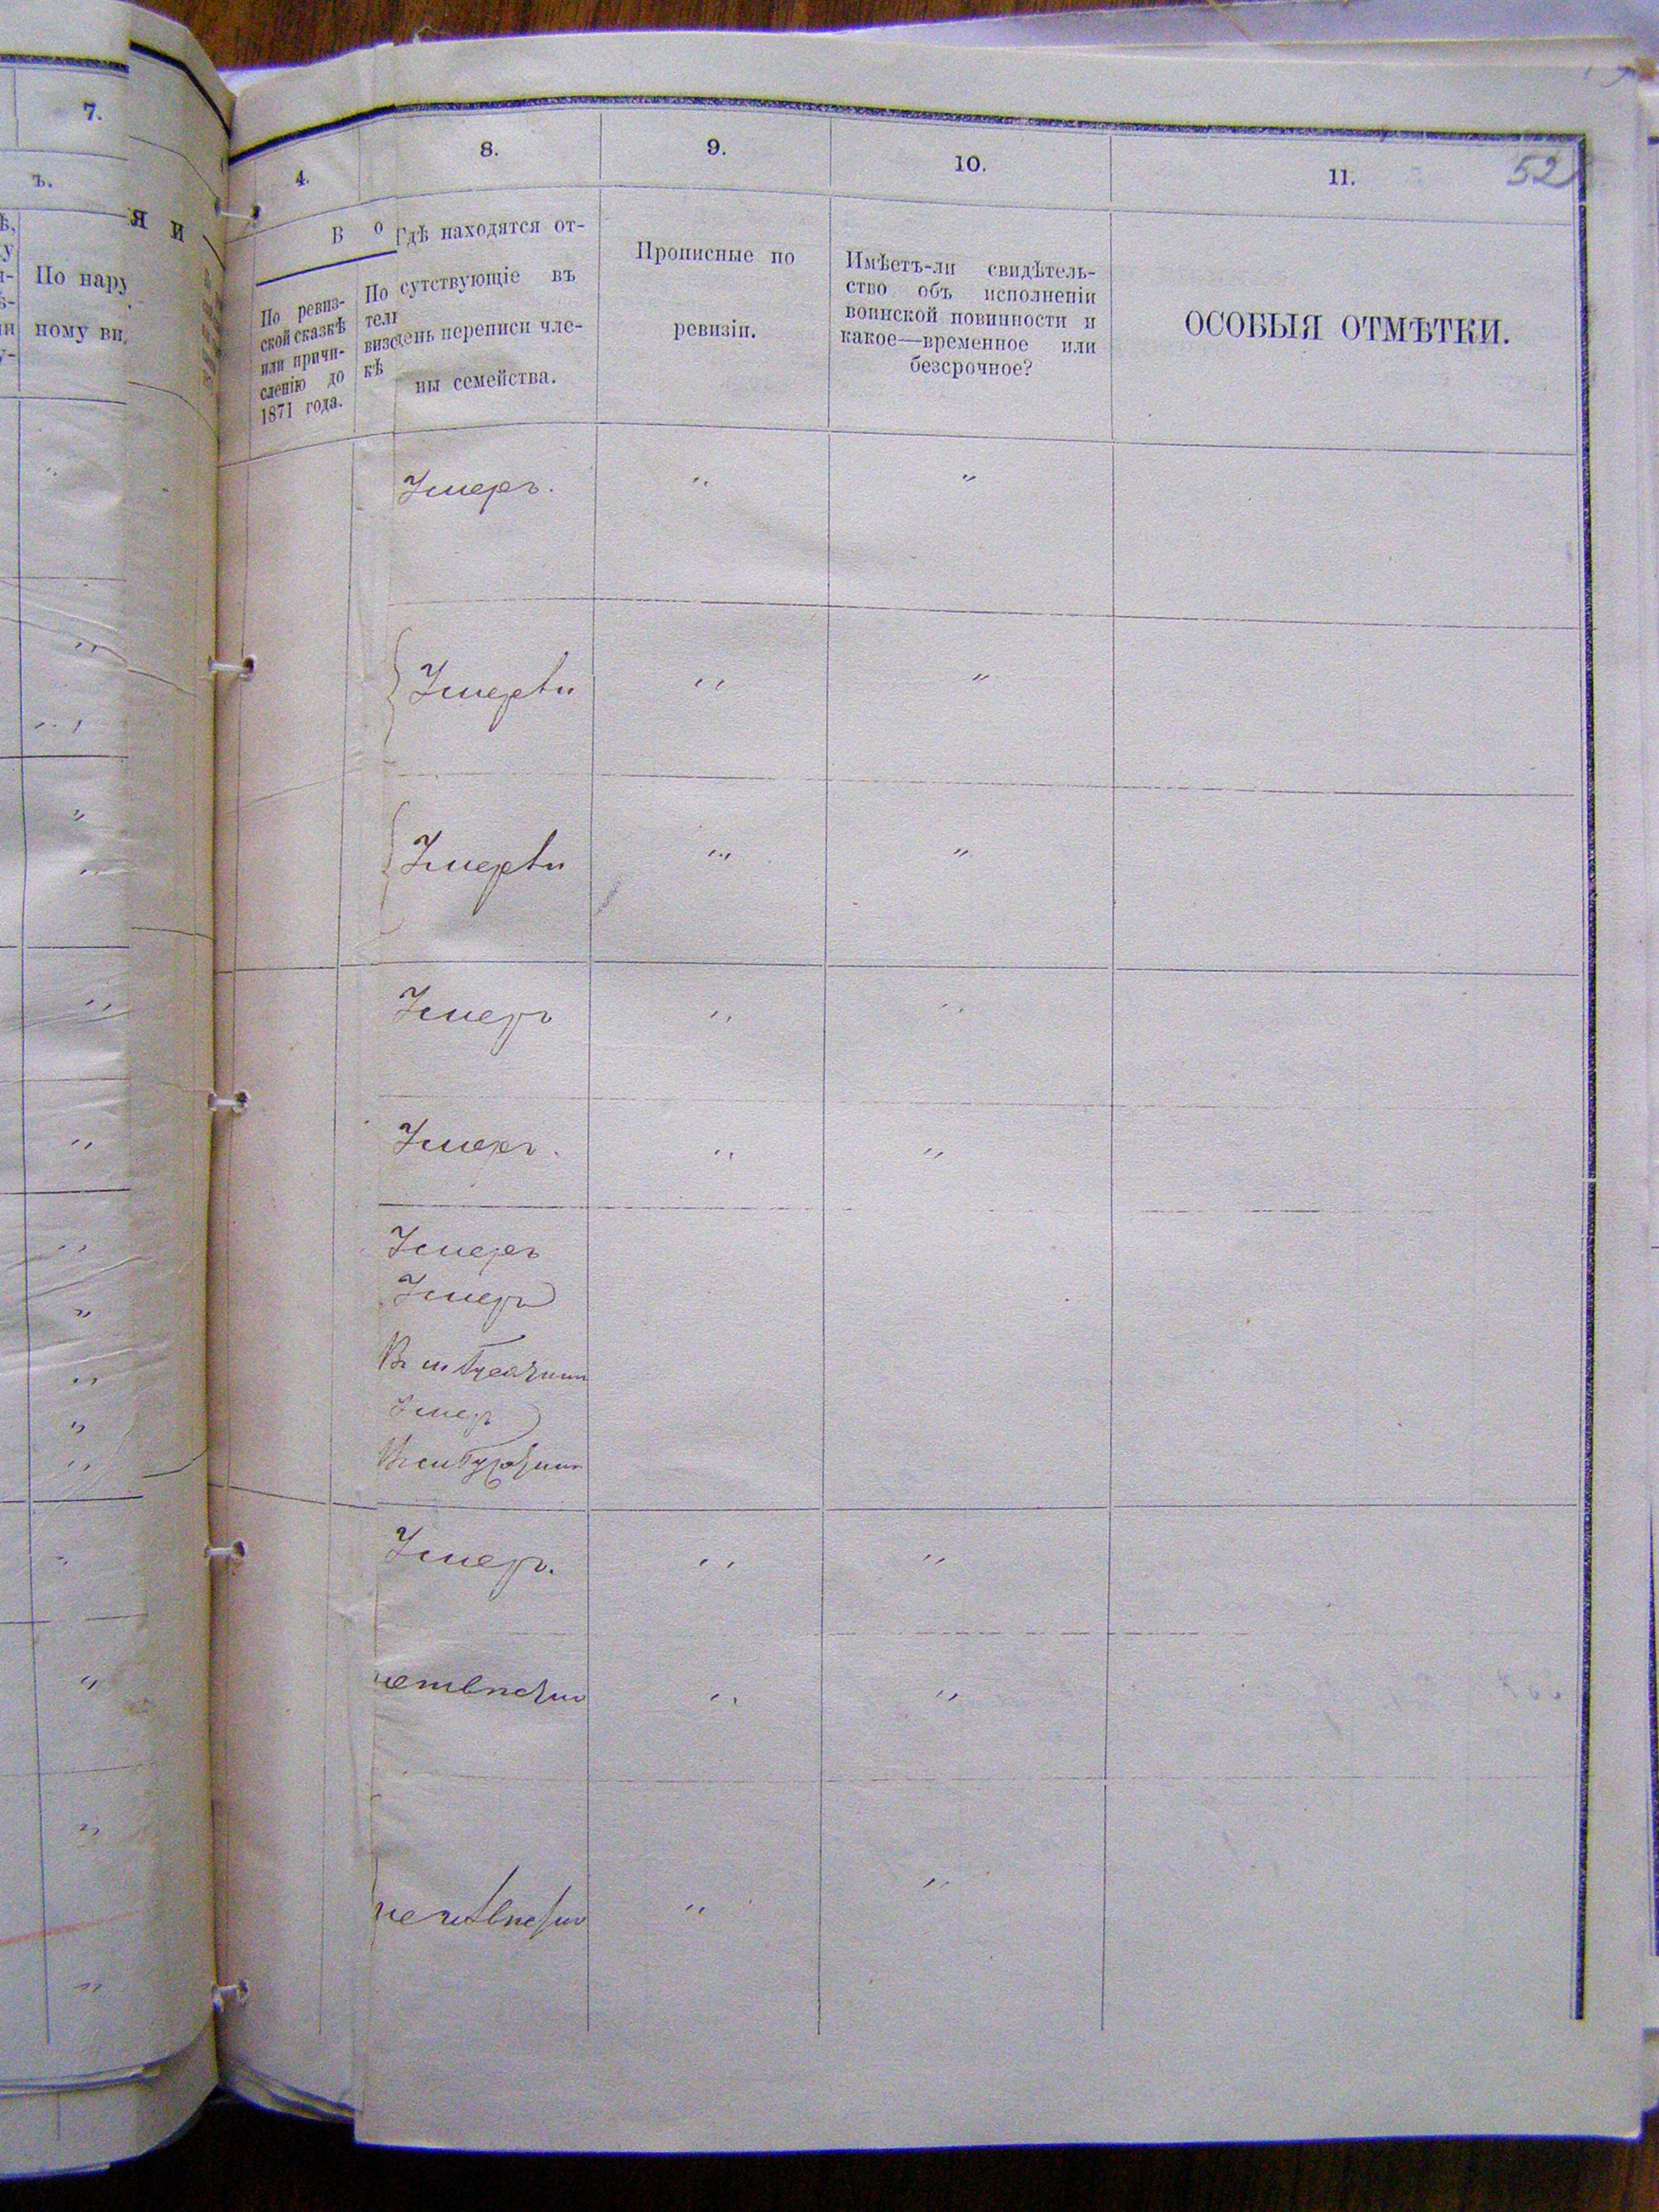 7.
ъ.
По нару
ному ви
я и
4.
8.
9.
10.
11.
52
В о
По ревиз-
ской сказкѣ
или причи-
сленію до
1871 года.
По
тел
визс
кѣ
Гдѣ находятся от-
сутствующіе въ
день переписи чле-
ны семейства.
Прописные по
ревизіи.
Имѣетъ-ли свидѣтель-
ство объ исполненіи
воинской повинности и
какое—временное или
безсрочное?
ОСОБЫЯ ОТМѢТКИ.
Умеръ. " "
Умерли " "
Умерли " "
Умеръ "
Умеръ. " "
Умеръ
Умеръ
Умеръ
Умеръ. " "
" "
" "